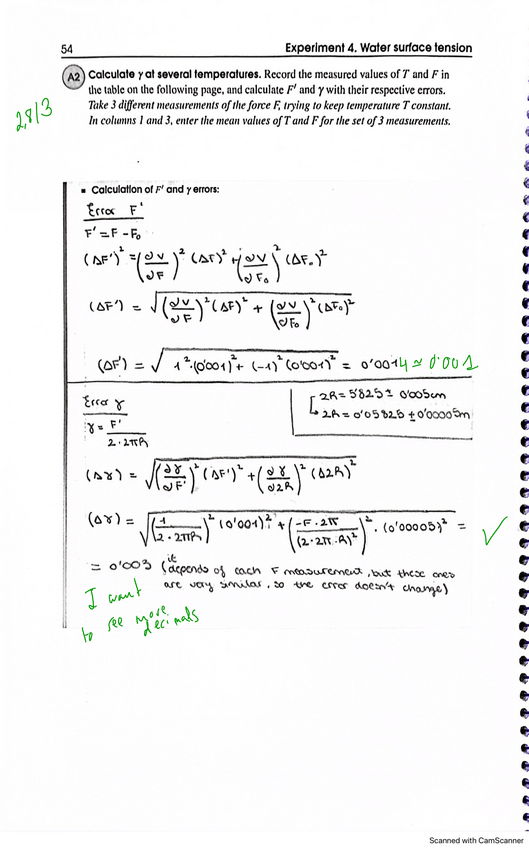 54
Experiment 4. Water surface tension
A2 Calculate γ at several temperatures. Record the measured values of T and F in
the table on the following page, and calculate F' and γ with their respective errors.
Take 3 different measurements of the force F, trying to keep temperature T constant.
In columns 1 and 3, enter the mean values of T and F for the set of 3 measurements.
2,8/3
▪ Calculation of F' and γ errors:
Error F'
F' = F - F₀
(ΔF')² = (∂V/∂F)² (ΔF)² + (∂V/∂F₀)² (ΔF₀)²
(ΔF') = √((∂V/∂F)² (ΔF)² + (∂V/∂F₀)² (ΔF₀)²)
(ΔF') = √(1²·(0'001)² + (-1)² (0'001)²) = 0'0014 ≃ 0'001
Error γ
2R = 5'825 ± 0'005cm
γ = F' / 2·2πR
2R = 0'05825 ± 0'00005m
(Δγ) = √((∂γ/∂F')² (ΔF')² + (∂γ/∂2R)² (Δ2R)²)
(Δγ) = √((1/2·2πR)² (0'001)² + (-F·2π/(2·2π·R)²)² · (0'00005)²) = ✓
= 0'003 (it depends of each F measurement, but these ones
are very similar, so the error doesn't change)
I want
to see more
decimals
Scanned with CamScanner